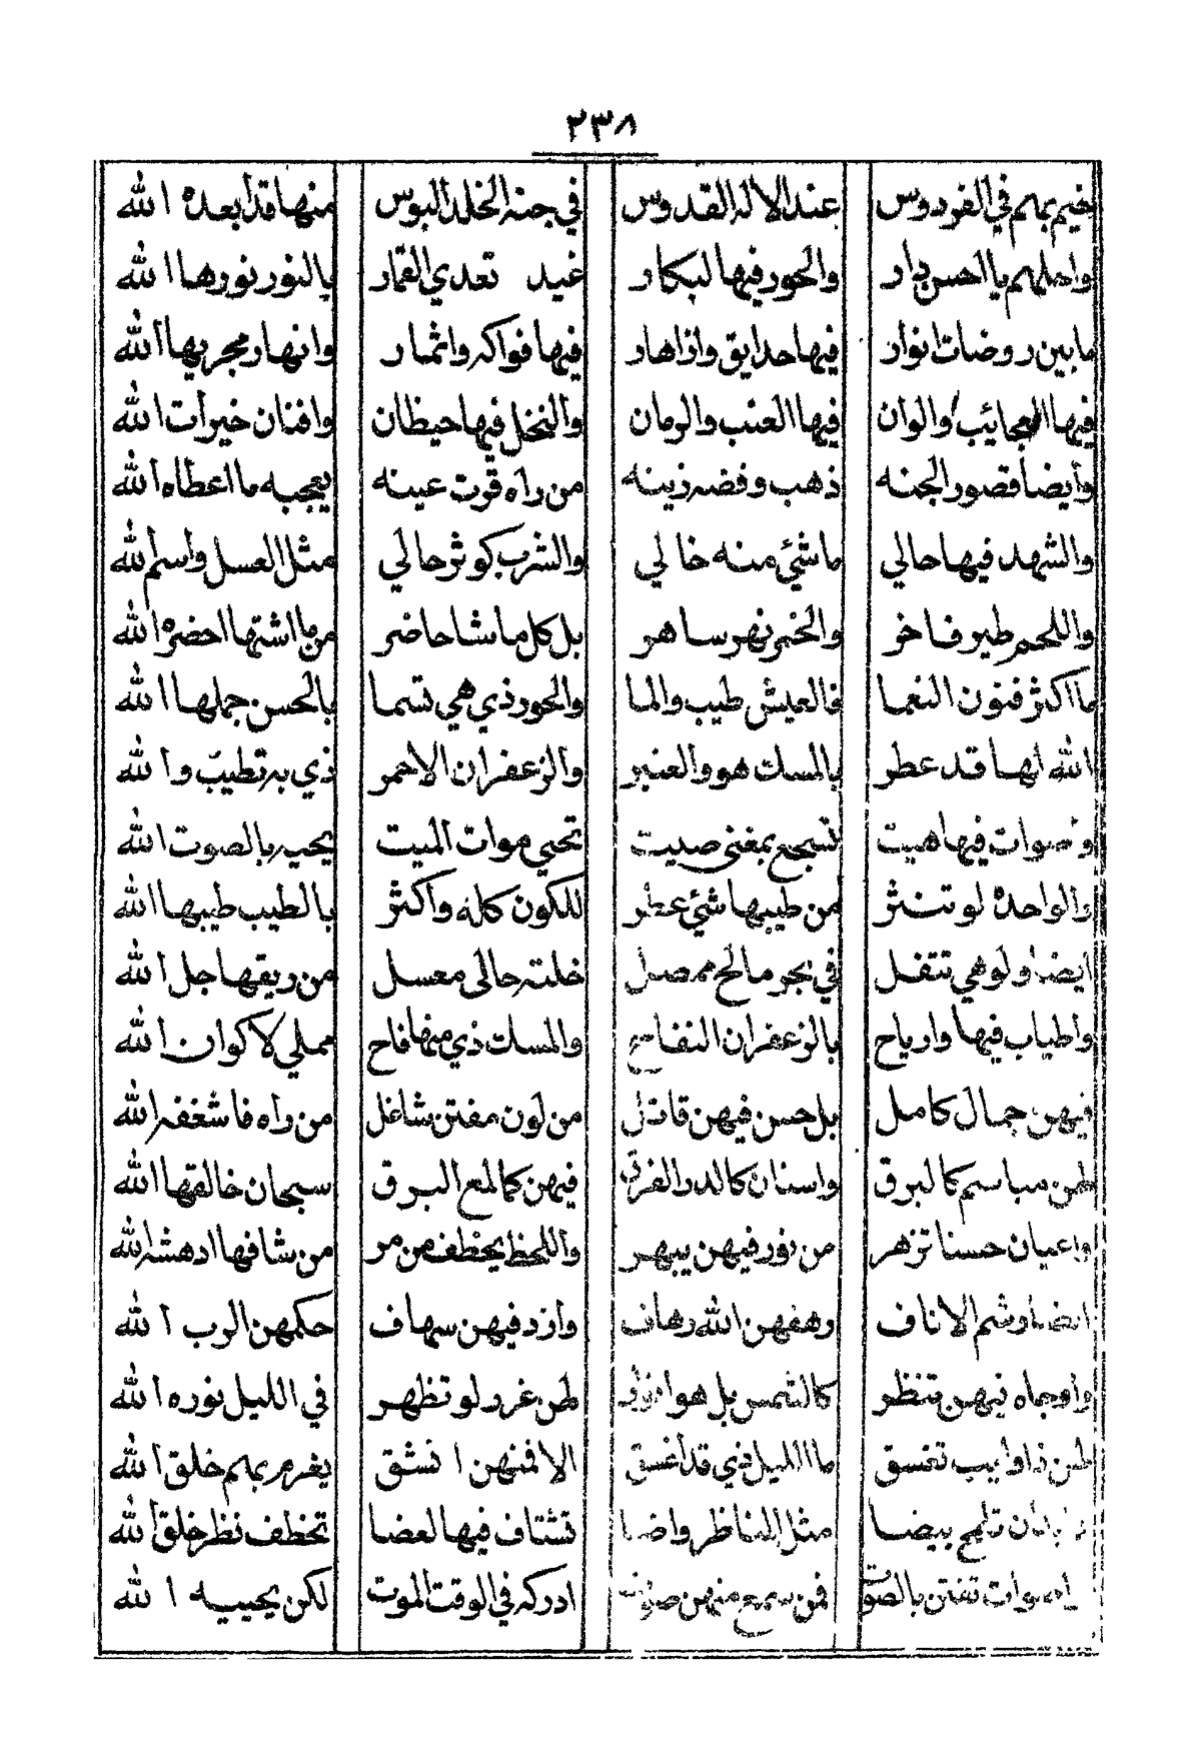 ٢٣٨
نقيم بهم في الفردوس عند الاله القدوس في جنه الخلد البوس منها قد ابعده الله
واحلهم يا احسن دار والحور فيها البكار غيد تعدي القمار بالنور نورها الله
ما بين روضات انوار فيها حدايق وازاهار فيها فواكه واثمار وانهار مجريها الله
فيها العجائب والوان فيها العنب والرمان والنخل فيها حيظان وافنان خيرات الله
وايضا قصور الجنه ذهب وفضه زينه من راه قرت عينه يعجبه ما اعطاه الله
والشهد فيها حالي ما شئ منه خالي والشرب كوثر حالي مثل العسل واسم الله
واللحم طير فاخر والخمر نهر ساهر بل كل ما شا حاضر من ما اشتها احضره الله
ما اكثر فنون النعما فالعيش طيب والما والحور ذي هي تسما بالحسن جملها الله
الله لها قد عطر بالمسك هو والعنبر والزعفران الاحمر ذي به تطيب والله
وصوات فيها هيت تسجع بمغنى صيت تحيي موات الميت يحييه بالصوت الله
والواحده لو تنثر من طيبها شئ عطر للكون كله واكثر بالطيب طيبها الله
ايضا ولو هي تتفل في بحر مالح ممصل خلته حالى معسل من ريقها جل الله
واطياب فيها وارياح بالزعفران النفاح والمسك ذي منها فاح مملي لاكوان الله
فيهن جمال كامل بل حسن فيهن قاتل من لون مفتن شاغل من راه فاشغفه الله
لهن مباسم كالبرق واسنان كالدر الفرق فيهن كالمع البرق سبحان خالقها الله
واعيان حسنا تزهر من نور فيهن يبهر واللحظ يخطف من مر من شافها ادهشه الله
ايضا وشم الاناف رهفهن الله رهاف وازد فيهن سهاف حكمهن الرب الله
واوجاه فيهن تنظر كالشمس بل هو لهن غرر لو تظهر في الليل نوره الله
لهن ذوايب تغسق ما الليل ذي قد اغسق الا فمنهن انشق يغرم بهم خلق الله
تلمح بيضا مثل المناظر واضا تشتاف فيها لعضا تخطف نظر خلق الله
اصوات تفتن بالصوت فمن سمع منهن صوت ادركه في الوقت الموت لكن يحييه الله